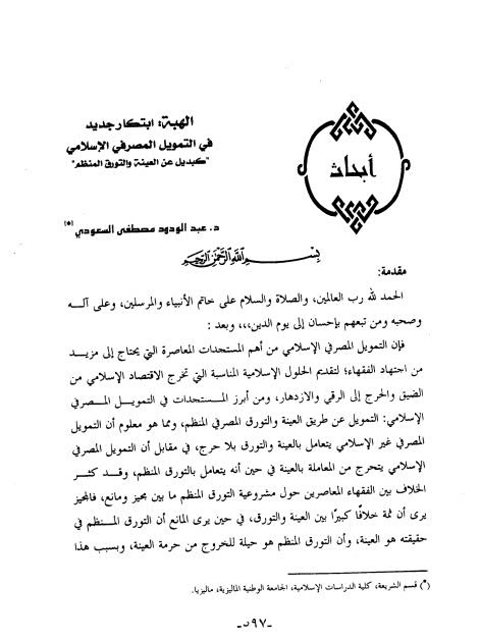 الهبة: ابتكار جديد
في التمويل المصرفي الإسلامي
"كبديل عن العينة والتورق المنظم"
أبحاث
د. عبد الودود مصطفى السعودي (*)
بسم الله الرحمن الرحيم
مقدمة:
الحمد لله رب العالمين، والصلاة والسلام على خاتم الأنبياء والمرسلين، وعلى آله
وصحبه ومن تبعهم بإحسان إلى يوم الدين،،،، وبعد :
فإن التمويل المصرفي الإسلامي من أهم المستجدات المعاصرة التي يحتاج إلى مزيد
من اجتهاد الفقهاء؛ لتقديم الحلول الإسلامية المناسبة التي تخرج الاقتصاد الإسلامي من
الضيق والحرج إلى الرقي والازدهار، ومن أبرز المستجدات في التمويل المصرفي
الإسلامي: التمويل عن طريق العينة والتورق المصرفي المنظم، ومما هو معلوم أن التمويل
المصرفي غير الإسلامي يتعامل بالعينة والتورق بلا حرج، في مقابل أن التمويل المصرفي
الإسلامي يتحرج من المعاملة بالعينة في حين أنه يتعامل بالتورق المنظم، وقد كثر
الخلاف بين الفقهاء المعاصرين حول مشروعية التورق المنظم ما بين مجيز ومانع، فالمجيز
يرى أن ثمة خلافًا كبيرًا بين العينة والتورق، في حين يرى المانع أن التورق المنظم في
حقيقته هو العينة، وأن التورق المنظم هو حيلة للخروج من حرمة العينة، وبسبب هذا
(*) قسم الشريعة، كلية الدراسات الإسلامية، الجامعة الوطنية الماليزية، ماليزيا.
-٥٩٧-